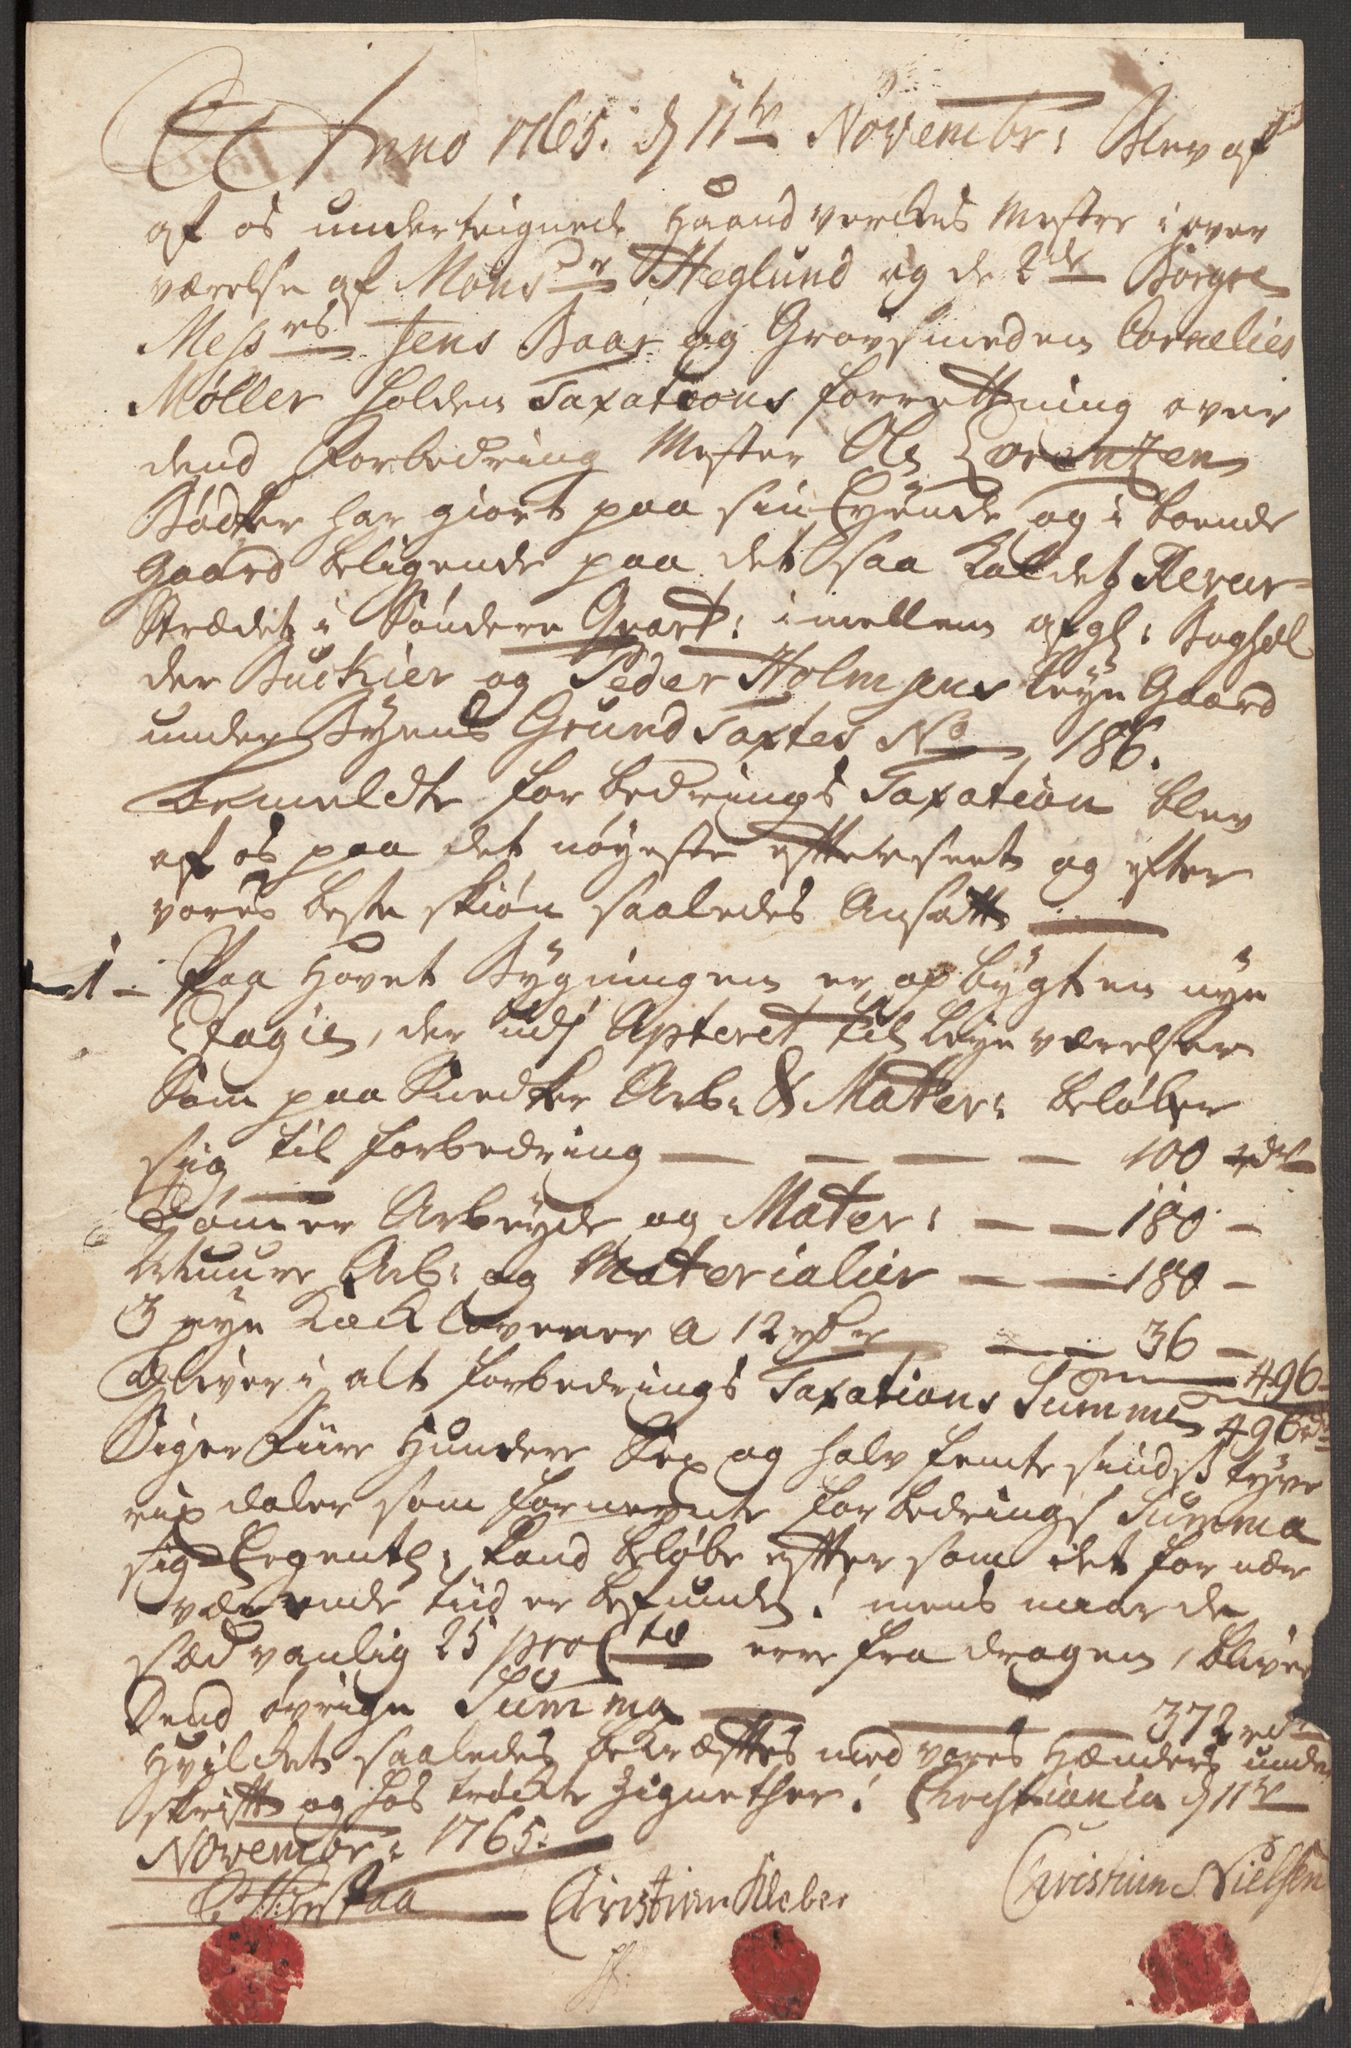 Anno 1765. d 11te Novembr: Blev af
af os underteignede Haandverckes Mestre i over
værelse af Monsr Heglund og de 2de Borgere
Messrs Jens Baar og Grovsmeden Cornelies
Møller holden Taxations forrettning over
dend Forbedring Mester Ole Lorentzen
Bødker har giort paa sin Eyende og i boende
Gaard beligende paa det saa kaldet Revier-
Strædet i Søndere Qvart: imellem afgl: Boghol
der Buckier og Peder Holmsens Leye Gaard
under Byens Grund Taxtes No 186.
bemeldte forbedrings Taxation blev
af os paa det nøyeste effterseet og efter
vores beste skiøn saaledes Ansatt
1- Paa Hovet Bygningen er opbygt en nye
Etagie, der udj Apteret til leye værelser
Som paa Snedker Arb: & Mater: beløber
sig til forbedring — — — — 100 rdr
Tømer Arbeyde og Mater: — — 180 -
Muure Arb: og Materialier — — 180 -
3 nye Kackelovener a 12 rdr — — 36 -
496-
bliver i alt forbedrings Taxations Summa 496 rd
Siger Fiire Hundere Sex og halv femte sinds tyve
rix daler som fornevnte forbedrings Summa
sig Eegentl: kand beløbe effter som det for nær
værende tiid er befunden: mens naar de
sædvanlig 25 pro Cto erre fra dragen, bliver
Dend øvrige Summa — — — 372 rdr
Hvilcket saaledes bekræfftes med vores Hænders under
skrifft og hos tröckte Zignether: Christiania d 11te
Novembr: 1765.
Christian Kleber Christian Nielsen